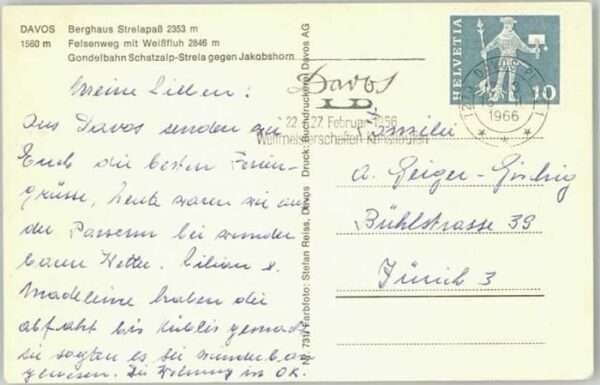 DAVOS Berghaus Strelapaß 2353 m
1560 m Felsenweg mit Weißfluh 2846 m
Gondelbahn Schatzalp-Strela gegen Jakobshorn
Meine Lieben!
Aus Davos senden wir
Euch die besten Ferien-
grüsse, heute waren wir auf
der Parsenn bei wunder
barem Wetter. Lilian &
Madeleine haben die
abfahrt bis Küblis gemacht
sie sagten es sei wunderbar
gewesen. Die Wohnung ist OK.
Nr. 731 Farbfoto: Stefan Reiss, Davos Druck: Buchdruckerei Davos AG
Davos
22.-27. Februar 1966
Weltmeisterschaften Kunstlaufen
HELVETIA
10
1966
Familie
A. Geiger-
Bühlstrasse 39
Zürich 3